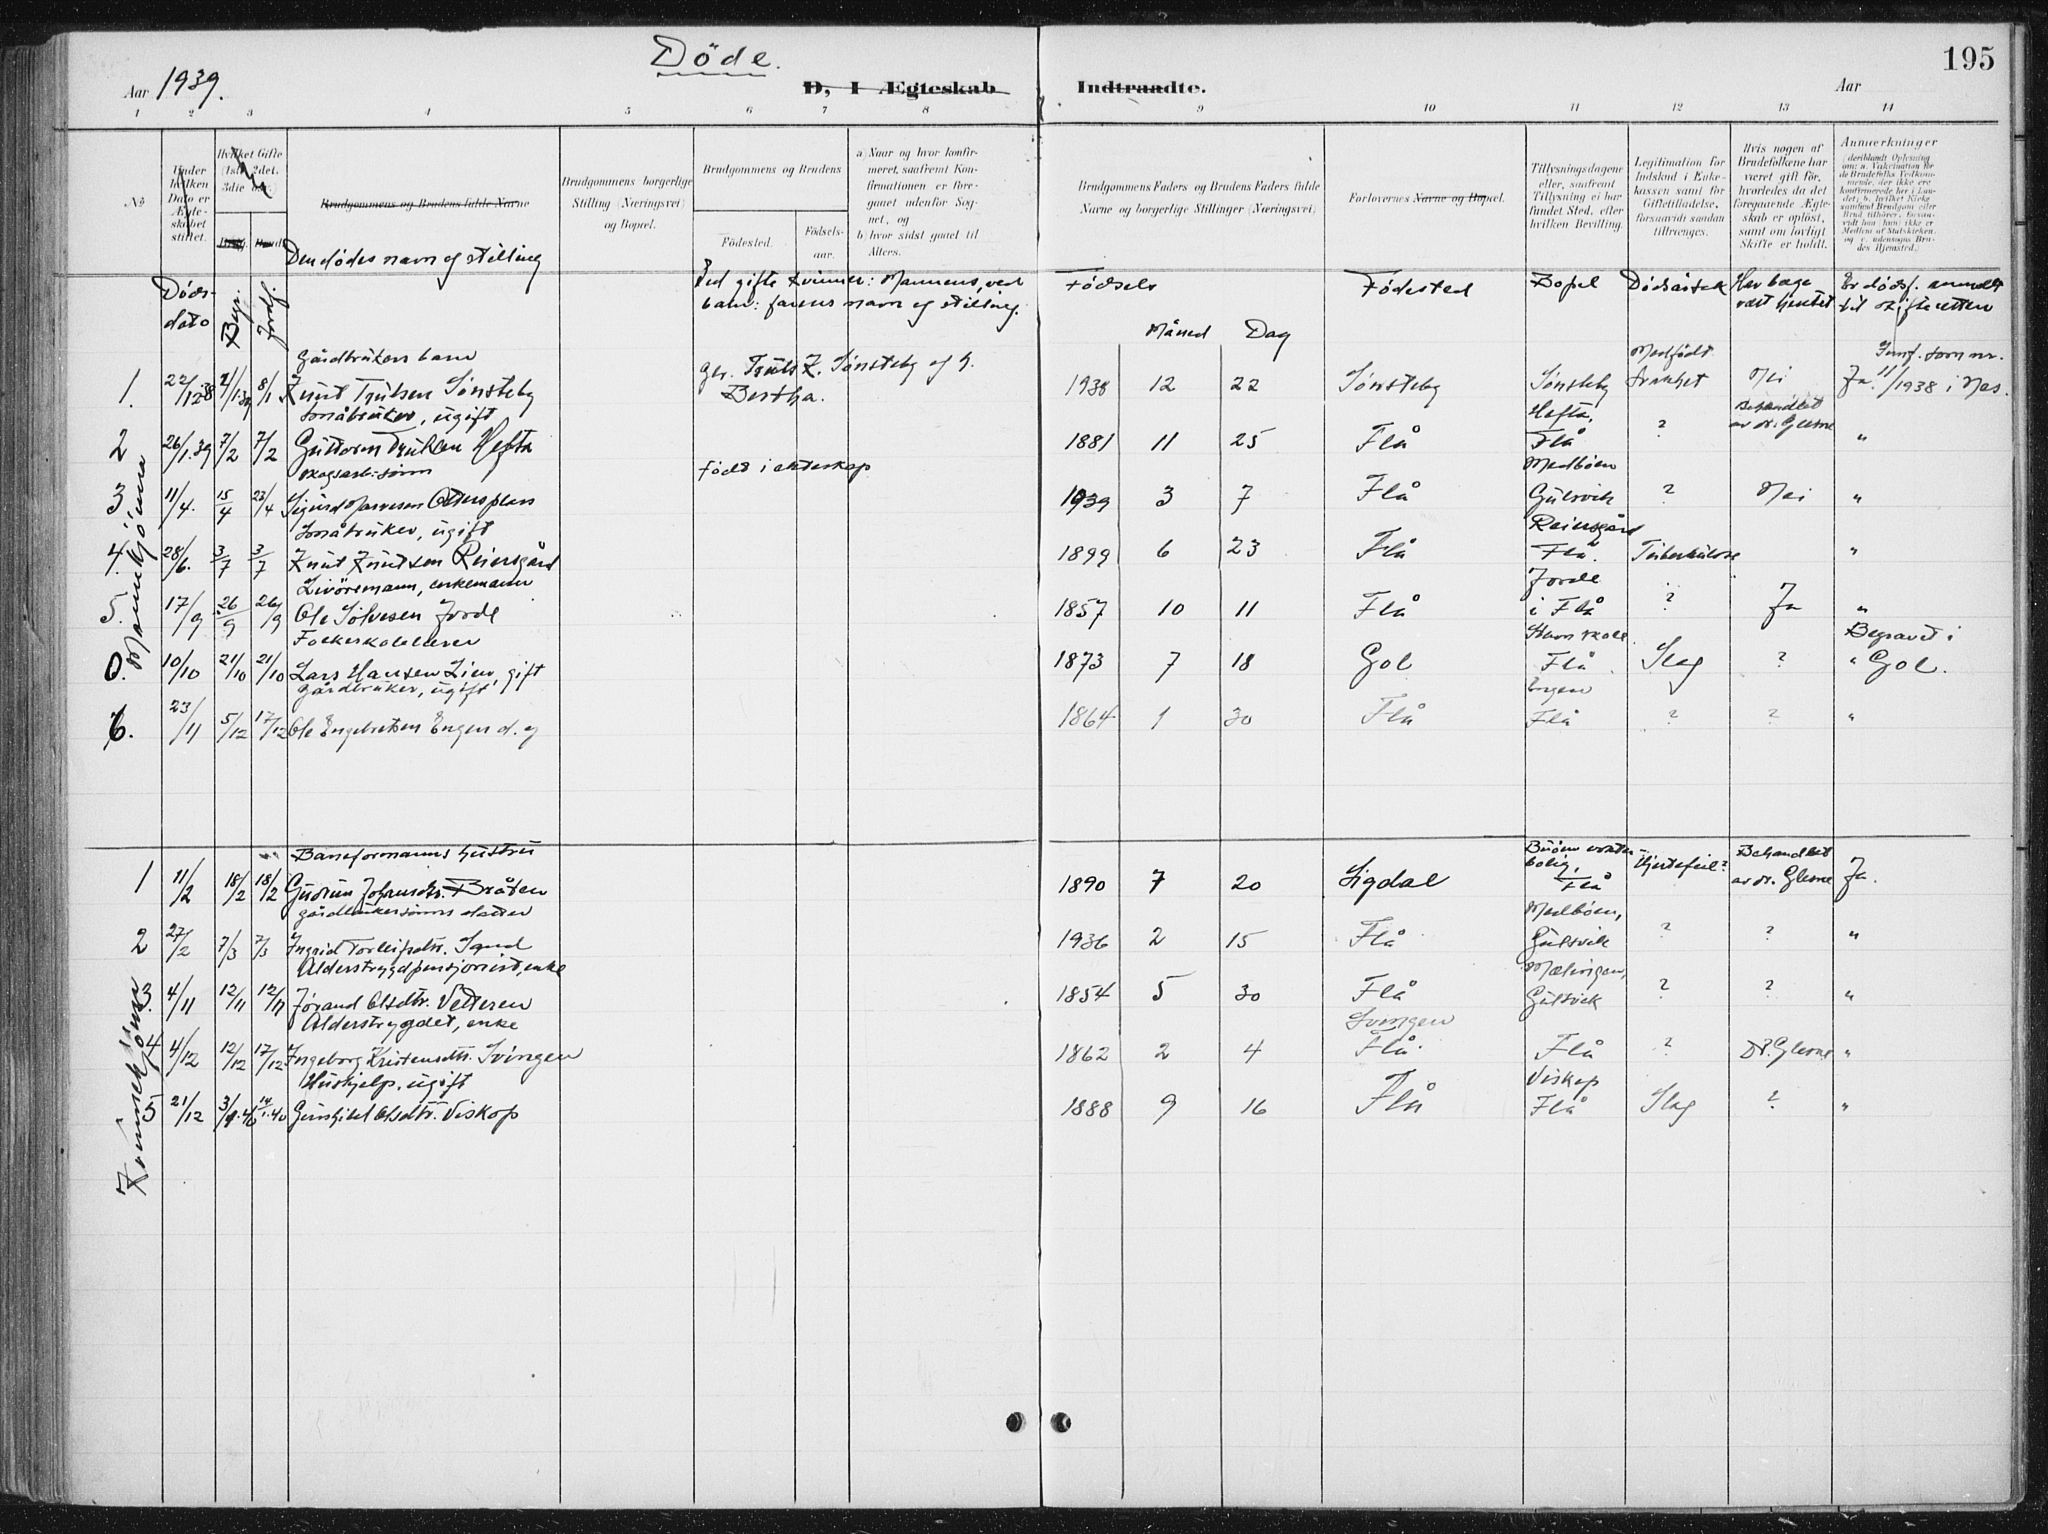 195
Døde.
Aar 1939.
D, I Ægteskab Indtraadte.
Aar
1 2 3 4 5 6 7 8 9 10 11 12 13 14
No.
Under hvilken Dato er Ægteskabet stiftet.
Hvilket Gifte (1ste, 2det, 3die osv.)
Brudg. Brud.
Brudgommens og Brudens fulde Navne
Brudgommens borgerlige Stilling (Næringsvei) og Bopæl.
Brudgommens og Brudens
Fødested.
Fødselsaar.
a) Naar og hvor konfirmeret, saafremt Konfirmationen er foregaaet udenfor Sognet, og
b) hvor sidst gaaet til Alters.
Brudgommens Faders og Brudens Faders fulde Navne og borgerlige Stillinger (Næringsvei)
Forlovernes Navne og Bopæl.
Tillysningsdagene eller, saafremt Tillysning ei har fundet Sted, efter hvilken Bevilling.
Legitimation for Indskud i Enkekassen samt for Giftetilladelse, forsaavidt saadan tiltrænges.
Hvis nogen af Brudefolkene har været gift før, hvorledes da det foregaaende Ægteskab er opløst, samt om lovligt Skifte er holdt.
Anmerkninger
(deriblandt Oplysning om: a. Vakcination før de Brudefolks Vedkommende, der ikke ere konfirmerede her i Landet; b. hvilket Kirkesamfund Brudgom eller Brud tilhører, forsaavidt han (hun) ikke er Medlem af Statskirken, og c. udensogns Brudes Hjemsted.
Dødsdato
Begr.
Jordf.
Den dødes navn og stilling
Ved gifte kvinner: Mannens, ved
barn: farens navn og stilling.
Fødsels
Måned Dag
Fødested
Bopel
Dødsårsak
Har læge vært hentet
Er dødsf. anmeldt til skifteretten
Mannkjønn
Gårdbrukers barn
1. 22/12 38 4/1.39 8/1 Knut Trulsen Sønsteby
Gbr. Truls K. Sønsteby og h. Bertha.
1938 12 22 Sønsteby Sønsteby Medfødt svakhet Nei Ja. Innf. som nr. 11/1938 i Nes.
Småbruker, ugift
2 26/1.39 7/2 7/2 Guttorm Trulsen Hefta
1881 11 25 Flå Hefta, Flå ? Behandlet av dr. Glesne "
skogsarb. sønn
3. 11/4. 15/4 23/4 Sigurd
født i ekteskap
1939 3 7 Flå Medbøen Gulsvik ? Nei "
Småbruker, ugift
4. 28/6. 3/7 3/7 Knut Knutsen Reinsgård
1899 6 23 Flå Reinsgård Flå. Tuberkulose "
Livøremann, enkemann
5. 17/9 26/9 26/9 Ole Sølvesen Jorde
1857 10 11 Flå Jorde i Flå ? Ja "
Folkeskolelærer
0. 10/10 21/10 21/10 Lars Hansen Lien, gift
1873 7 18 Gol Flå Slag ? " Begravet i Gol.
Gårdbruker, ugift
6. 23/11 5/12 17/12 Ole Engebretsen Engen d. y
1864 1 30 Flå Engen Flå ? ? "
Kvinnekjønn
Baneformanns hustru
1 11/2 18/2 18/2 Gudrun Johansdtr. Bråten
1890 7 20 Sigdal bolig, Flå Hjertefeil? Behandlet av dr. Glesne Ja.
gårdbrukersønns datter
2 27/2 7/3 7/3 Ingrid Torleifsdtr.
1936 2 15 Flå Medbøen, Gulsvik ? ? "
Alderstrygdpensjonist, enke
3. 4/11 12/11 12/11 Jørand Olsdtr. Vetteren
1854 5 30 Flå Gulsvik ? ? "
Alderstrygdet, enke
4 4/12 12/12 17/12 Ingeborg Kristensdtr. Svingen
1862 2 4 Svingen Flå. Flå ? Dr. Glesne "
Hushjelp, ugift
5 21/12 3/1.40 14/1.40 Gunhild Olsdtr. Viskop
1888 9 16 Flå Viskop Flå Slag ? "